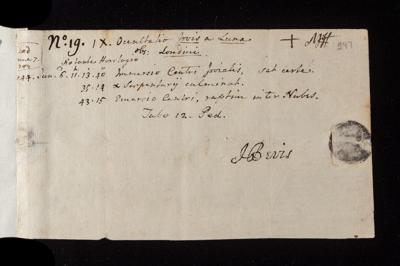 No. 19. IX. Occultatio Jovis a Luna
obs: Londini
Notante Horologio
Jun. 6. 11. 13. 40 Immersio Centri Jovialis, sat certe.
35. 14 α Serpentarij culminat.
43. 15 Emersio Centri, raptim inter Nubes.
Tubo 12. Ped.
J Bevis